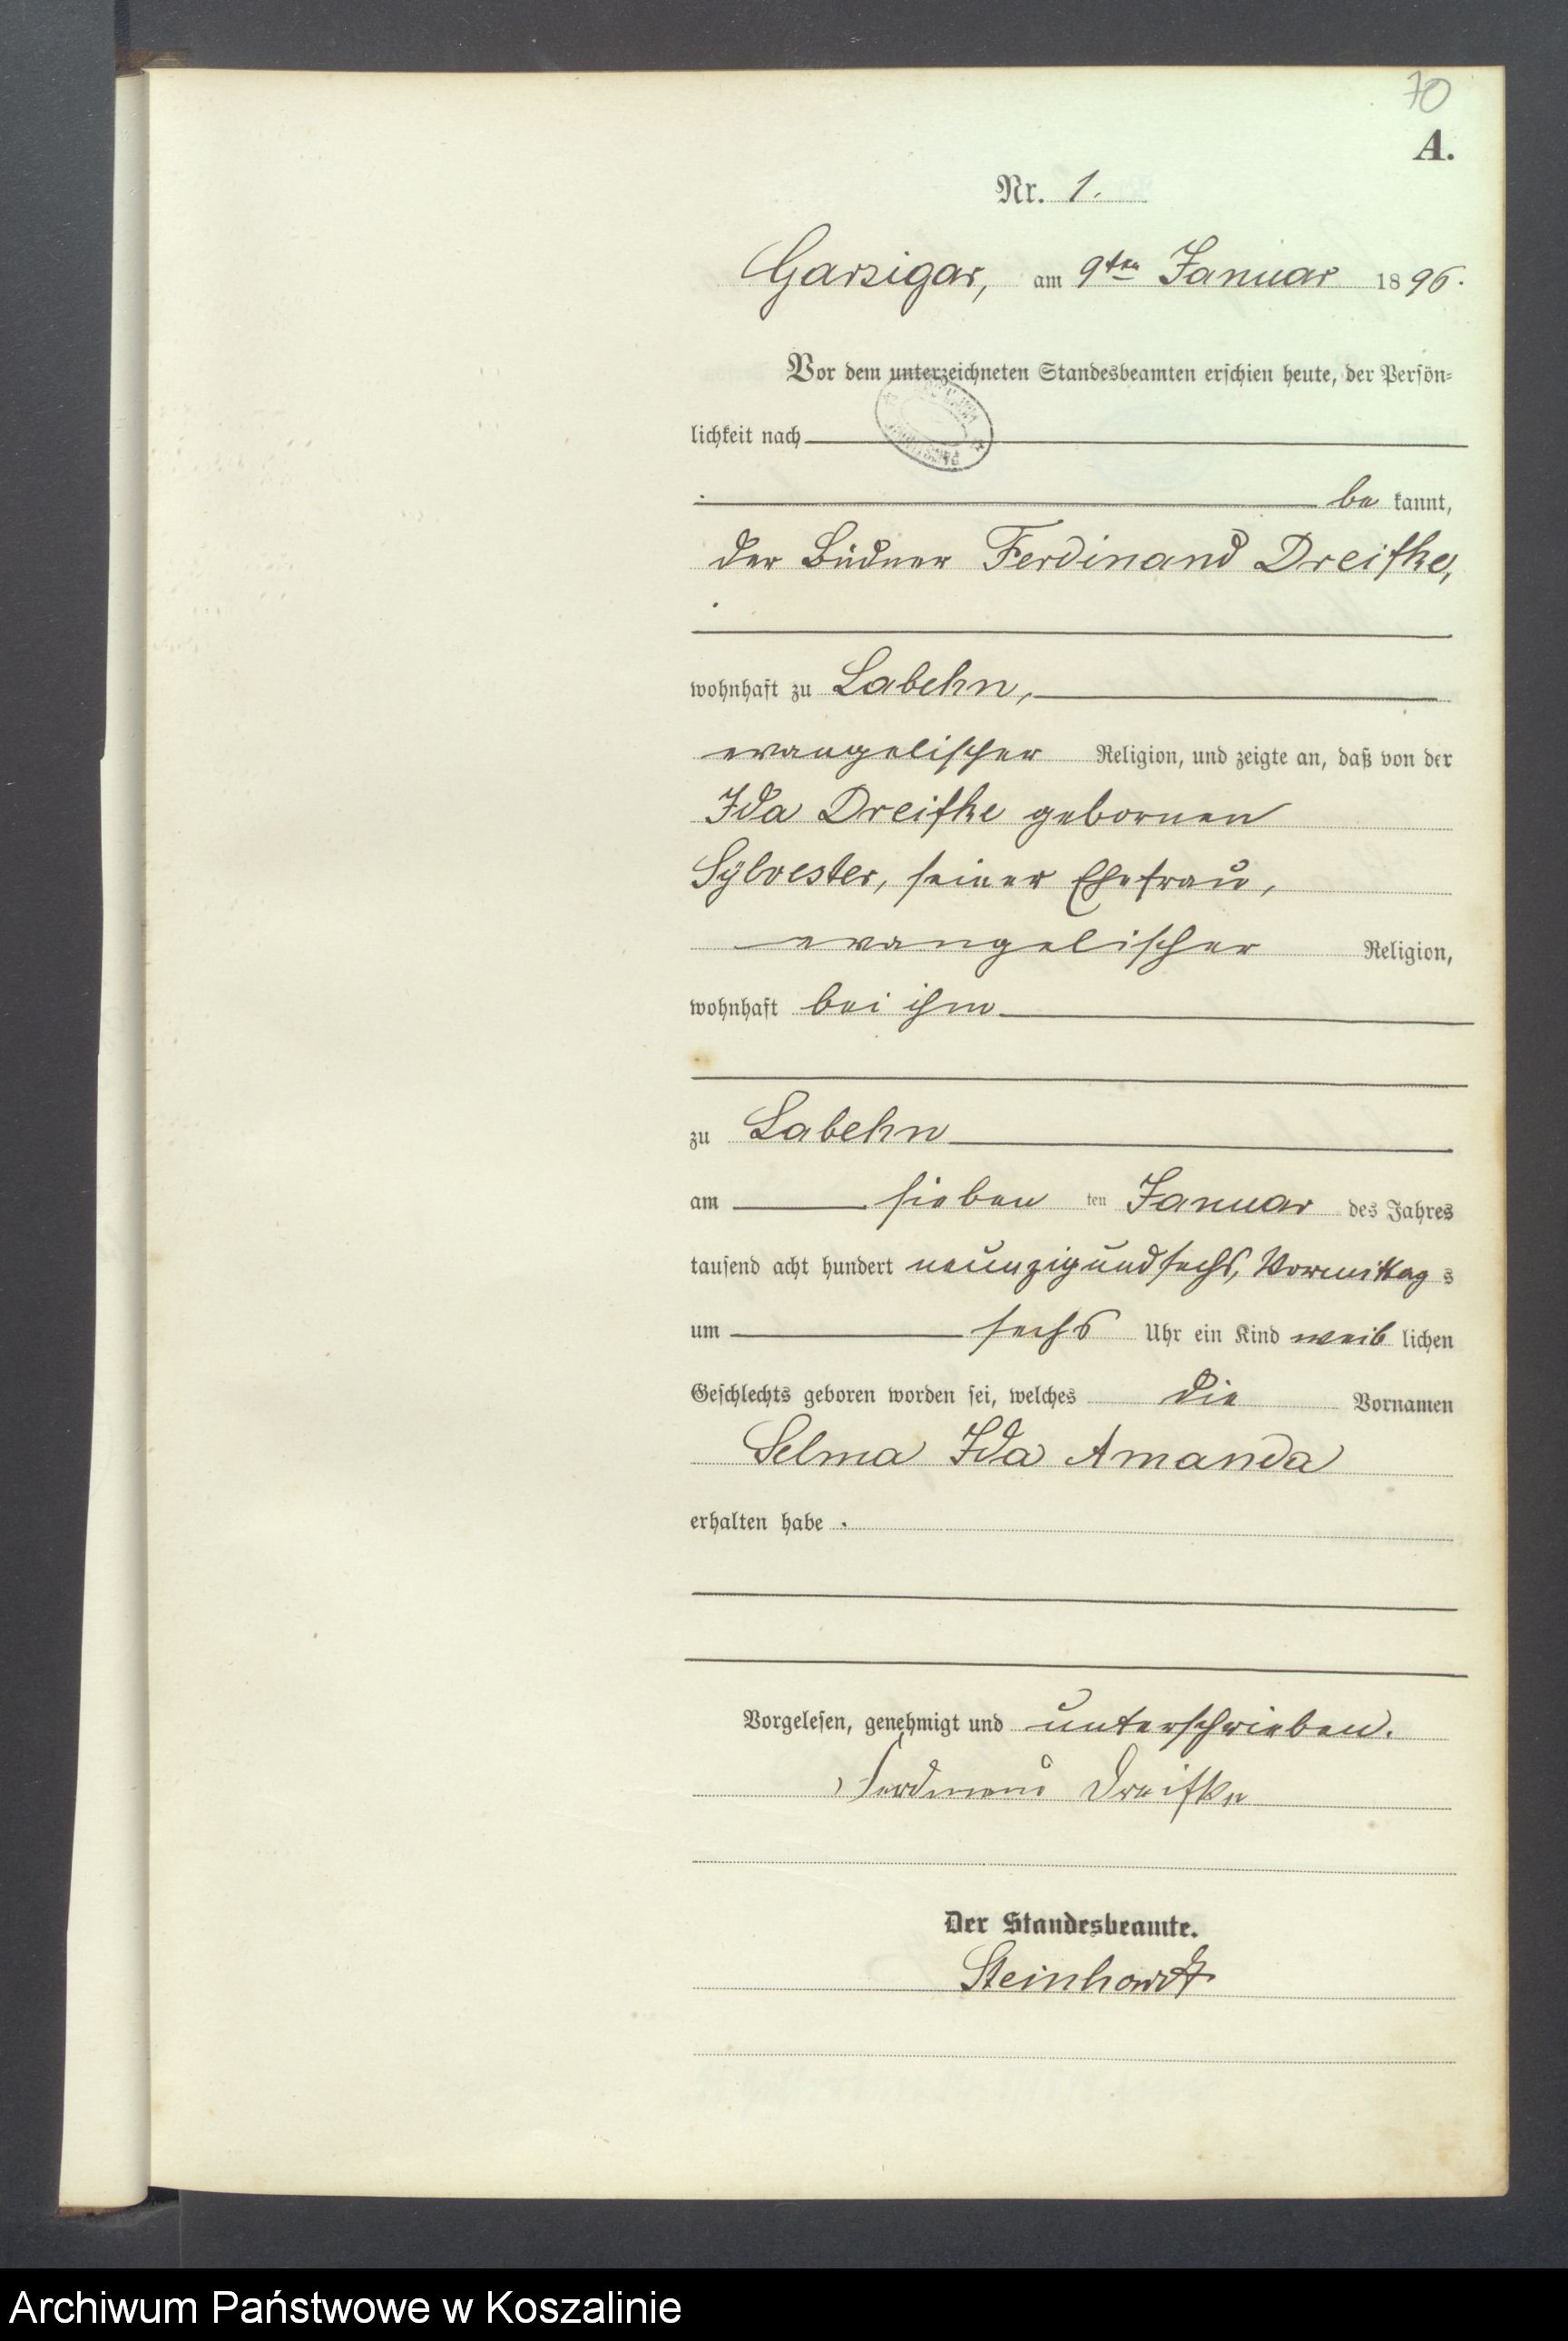 70
A.
Nr. 1.
Garzigar, am 9ten Januar 1896.
Vor dem unterzeichneten Standesbeamten erschien heute, der Persön-
lichkeit nach
be kannt,
der Büdner Ferdinand Dreifke,
wohnhaft zu Labehn,
evangelischer Religion, und zeigte an, daß von der
Ida Dreifke gebornen
Sylvester, seiner Ehefrau,
evangelischer Religion,
wohnhaft bei ihm
zu Labehn
am sieben ten Januar des Jahres
tausend acht hundert neunzig und sechs, Vormittag s
um sechs Uhr ein Kind weib lichen
Geschlechts geboren worden sei, welches die Vornamen
Selma Ida Amanda
erhalten habe .
Vorgelesen, genehmigt und unterschrieben.
Ferdinand Dreifke
Der Standesbeamte.
Archiwum Państwowe w Koszalinie